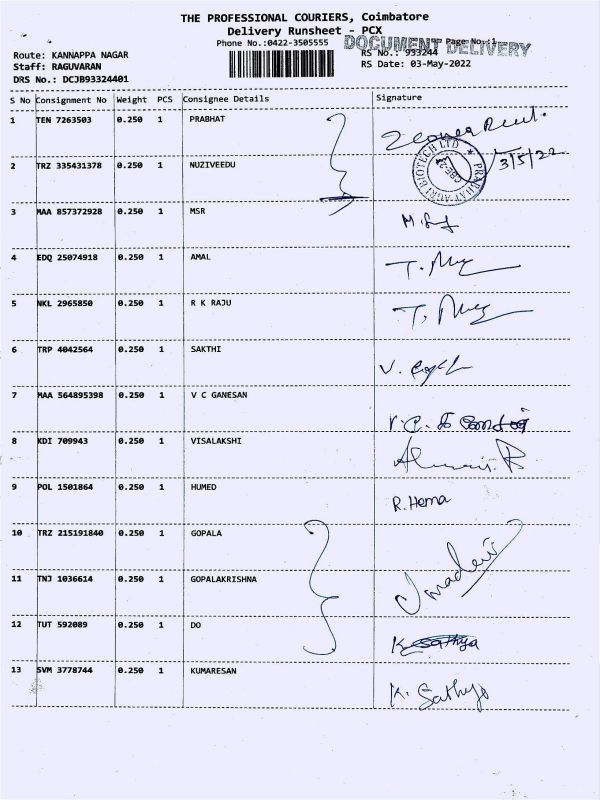 THE PROFESSIONAL COURIERS, Coimbatore
Delivery Runsheet - PCX
Phone No.:0422-3505555
DOCUMENT DELIVERY
Page No.:1
Route: KANNAPPA NAGAR
RS No.: 933244
Staff: RAGUVARAN
RS Date: 03-May-2022
DRS No.: DCJB93324401
S No Consignment No Weight PCS Consignee Details Signature
1 TEN 7263503 0.250 1 PRABHAT
2 TRZ 335431378 0.250 1 NUZIVEEDU
PRABHAT AGRI BIOTECH LTD
3/5/22
3 MAA 857372928 0.250 1 MSR
4 EDQ 25074918 0.250 1 AMAL
5 NKL 2965850 0.250 1 R K RAJU
6 TRP 4042564 0.250 1 SAKTHI
7 MAA 564895398 0.250 1 V C GANESAN
8 KDI 709943 0.250 1 VISALAKSHI
9 POL 1501864 0.250 1 HUMED R.Hema
10 TRZ 215191840 0.250 1 GOPALA
11 TNJ 1036614 0.250 1 GOPALAKRISHNA
12 TUT 592089 0.250 1 DO
13 SVM 3778744 0.250 1 KUMARESAN K. Sathya